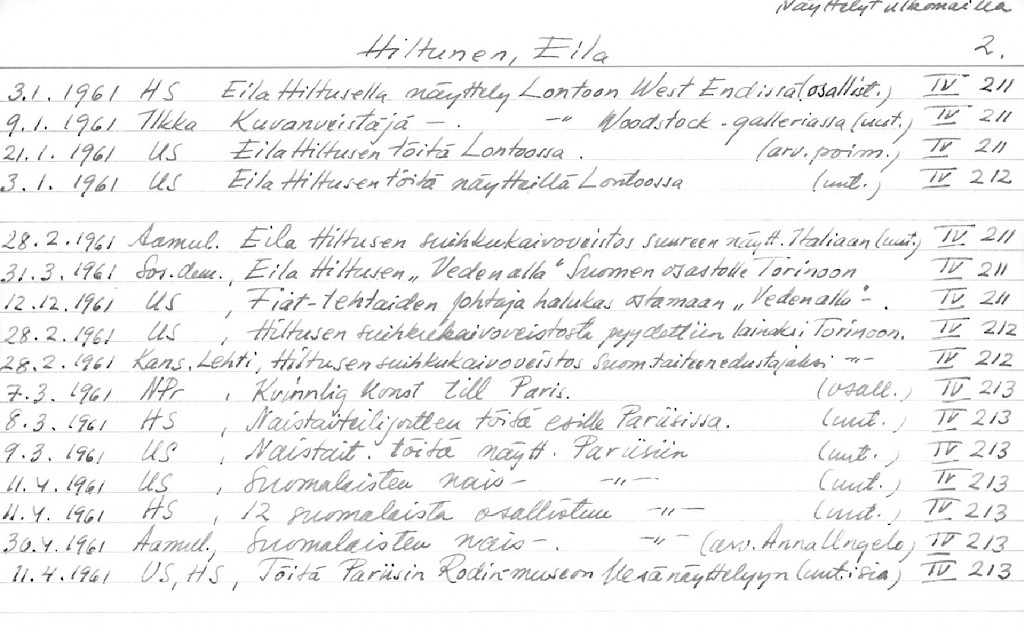 Näyttelyt ulkomailla
Hiltunen, Eila 2.
3.1.1961 HS Eila Hiltusella näyttely Lontoon West Endissä (osallist.) IV 211
9.1.1961 Ilkka Kuvanveistäjä -. -"- Woodstock-galleriassa (uut.) IV 211
21.1.1961 US Eila Hiltusen töitä Lontoossa. (arv. poim.) IV 211
3.1.1961 US Eila Hiltusen töitä näytteillä Lontoossa (uut.) IV 212
28.2.1961 Aamul. Eila Hiltusen suihkukaivoveistos suureen näytt. Italiaan (uut.) IV 211
31.3.1961 Sos.dem., Eila Hiltusen „Veden alla" Suomen osastolle Torinoon IV 211
12.12.1961 US , Fiat-tehtaiden johtaja halukas ostamaan „Veden alla"-. IV 211
28.2.1961 US , Hiltusen suihkukaivoveistosta pyydettiin lainaksi Torinoon. IV 212
28.2.1961 Kans. Lehti, Hiltusen suihkukaivoveistos Suom taiteen edustajaksi -"- IV 212
7.3.1961 NPr , Kvinnlig konst till Paris. (osall.) IV 213
8.3.1961 HS , Naistaiteilijoitten töitä esille Pariisissa. (uut.) IV 213
9.3.1961 US , Naistait. töitä näytt. Pariisiin (uut.) IV 213
11.4.1961 US , Suomalaisten nais- -"- (uut.) IV 213
11.4.1961 HS , 12 suomalaista osallistuu -"- (uut.) IV 213
30.4.1961 Aamul., Suomalaisten nais-. -"- (arv. Anna Ungelo) IV 213
11.4.1961 US, HS , Töitä Pariisin Rodin-museon kesänäyttelyyn (uutisia) IV 213